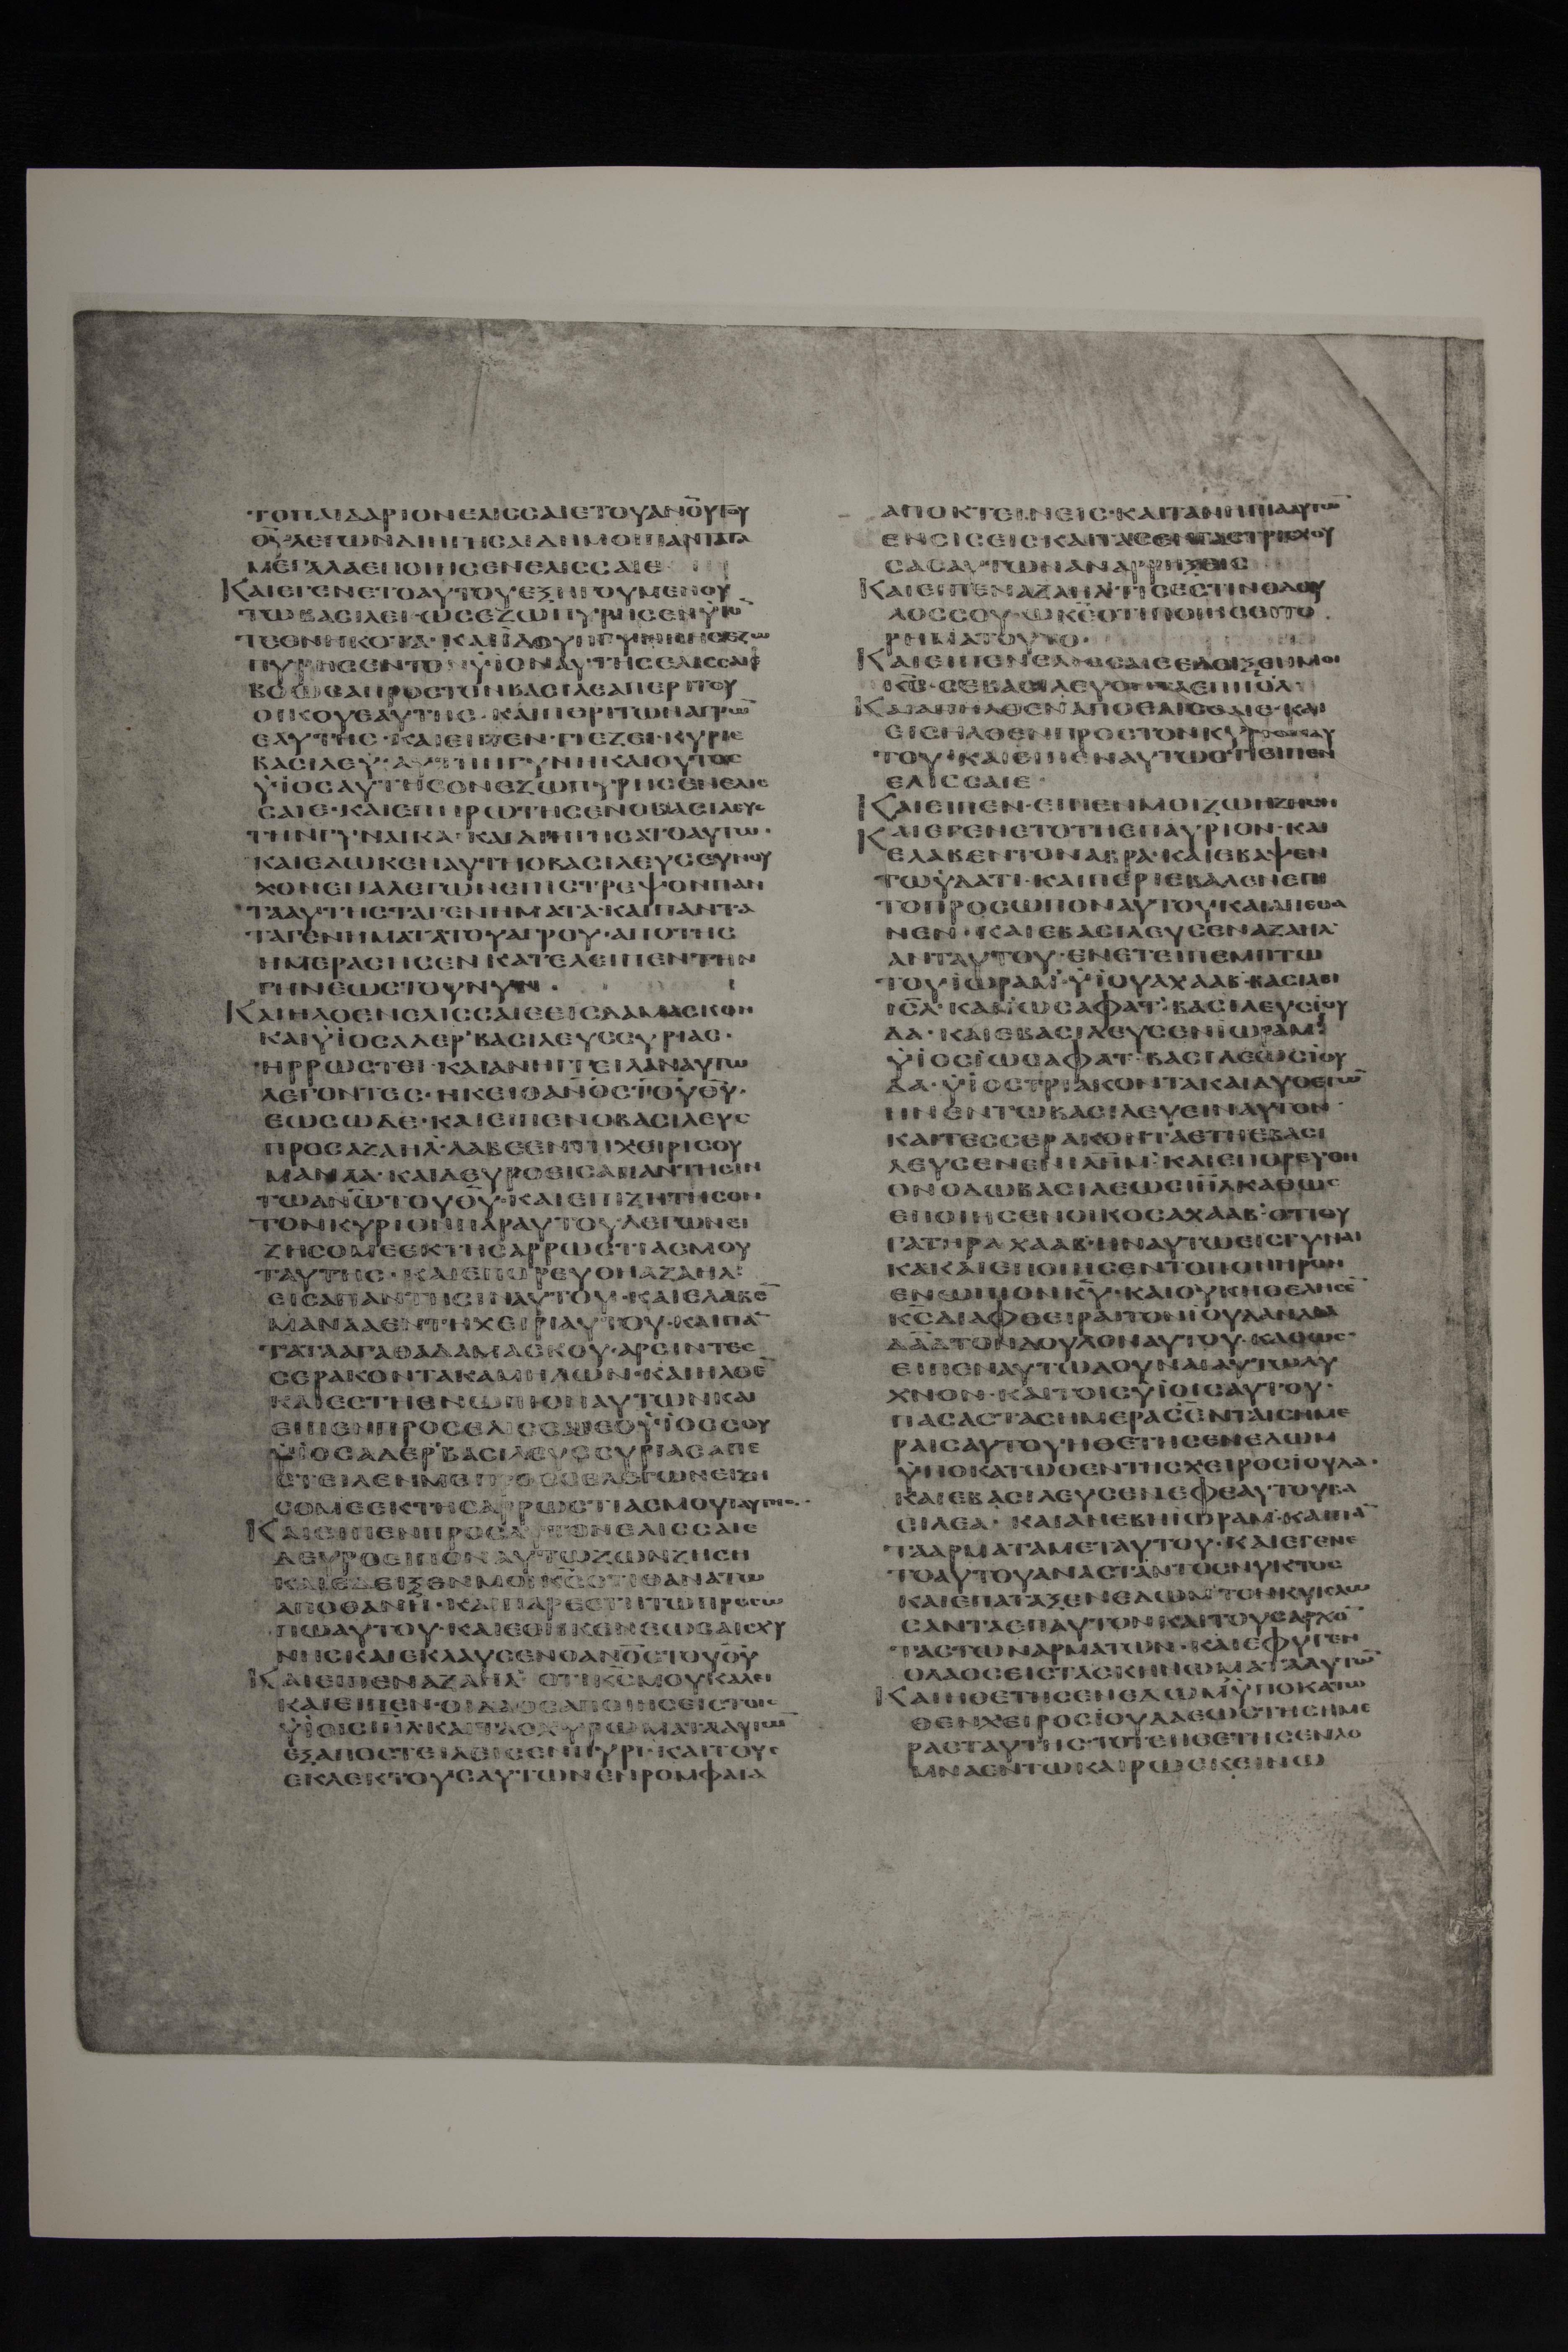 ΤΟΠΑΙΔΑΡΙΟΝΕΛΙΣΣΑΙΕΤΟΥΑΝΟΥΤΟΥ
ΘΥ·ΛΕΓΩΝΔΙΗΓΗΣΑΙΔΗΜΟΙΠΑΝΤΑΤΑ
ΜΕΓΑΛΑΕΠΟΙΗΣΕΝΕΛΙΣΣΑΙΕ
ΚΑΙΕΓΕΝΕΤΟΑΥΤΟΥΕΞΗΓΟΥΜΕΝΟΥ
ΤΩΒΑΣΙΛΕΙ·ΩΣΕΖΩΠΥΡΗΣΕΝΥΙΟ̄
ΤΕΘΝΗΚΟΤΑ·ΚΑΙΙΔΟΥΗΓΥΝΗΗΣΕΖΩ
ΠΥΡΗΣΕΝΤΟΝΥΙΟΝΑΥΤΗΣΕΛΙΣΣΑΙΕ
ΒΟΩΣΑΠΡΟΣΤΟΝΒΑΣΙΛΕΑΠΕΡΙΤΟΥ
ΟΙΚΟΥΕΑΥΤΗΣ·ΚΑΙΠΕΡΙΤΩΝΑΓΡΩ̄
ΕΑΥΤΗΣ·ΚΑΙΕΙΠΕΝ·ΓΙΕΖΕΙ·ΚΥΡΙΕ
ΒΑΣΙΛΕΥ·ΑΥΤΗΗΓΥΝΗΚΑΙΟΥΤΟΣ
ΥΙΟΣΑΥΤΗΣΟΝΕΖΩΠΥΡΗΣΕΝΕΛΙΣ
ΣΑΙΕ·ΚΑΙΕΠΗΡΩΤΗΣΕΝΟΒΑΣΙΛΕΥΣ
ΤΗΝΓΥΝΑΙΚΑ·ΚΑΙΔΙΗΓΗΣΑΤΟΑΥΤΩ·
ΚΑΙΕΔΩΚΕΝΑΥΤΗΟΒΑΣΙΛΕΥΣΕΥΝΟΥ
ΧΟΝΕΝΑΛΕΓΩΝΕΠΙΣΤΡΕΨΟΝΠΑΝ
ΤΑΑΥΤΗΣΤΑΓΕΝΗΜΑΤΑ·ΚΑΙΠΑΝΤΑ
ΤΑΓΕΝΗΜΑΤΑΤΟΥΑΓΡΟΥ·ΑΠΟΤΗΣ
ΗΜΕΡΑΣΗΣΕΝΚΑΤΕΛΕΙΠΕΝΤΗΝ
ΓΗΝΕΩΣΤΟΥΝΥΝ·
ΚΑΙΗΛΘΕΝΕΛΙΣΣΑΙΕΕΙΣΔΑΜΑΣΚΟΝ
ΚΑΙΥΙΟΣΑΔΕΡ'ΒΑΣΙΛΕΥΣΣΥΡΙΑΣ·
ΗΡΡΩΣΤΕΙ·ΚΑΙΑΝΗΓΓΕΙΛΑΝΑΥΤΩ
ΛΕΓΟΝΤΕΣ·ΗΚΕΙΟΑΝΟΣΤΟΥΘΥ·
ΕΩΣΩΔΕ·ΚΑΙΕΙΠΕΝΟΒΑΣΙΛΕΥΣ
ΠΡΟΣΑΖΑΗΛ·ΛΑΒΕΕΝΤΗΧΕΙΡΙΣΟΥ
ΜΑΝΑΑ·ΚΑΙΔΕΥΡΟΕΙΣΑΠΑΝΤΗΣΙΝ
ΤΩΑΝΩΤΟΥΘΥ·ΚΑΙΕΠΙΖΗΤΗΣΟΝ
ΤΟΝΚΥΡΙΟΝΠΑΡΑΥΤΟΥΛΕΓΩΝΕΙ
ΖΗΣΟΜΕΕΚΤΗΣΑΡΡΩΣΤΙΑΣΜΟΥ
ΤΑΥΤΗΣ·ΚΑΙΕΠΟΡΕΥΘΗΑΖΑΗΛ
ΕΙΣΑΠΑΝΤΗΣΙΝΑΥΤΟΥ·ΚΑΙΕΛΑΒΕ̄
ΜΑΝΑΑΕΝΤΗΧΕΙΡΙΑΥΤΟΥ·ΚΑΙΠᾹ
ΤΑΤΑΑΓΑΘΑΔΑΜΑΣΚΟΥ·ΑΡΣΙΝΤΕΣ
ΣΕΡΑΚΟΝΤΑΚΑΜΗΛΩΝ·ΚΑΙΗΛΘΕ̄
ΚΑΙΕΣΤΗΕΝΩΠΙΟΝΑΥΤΩΝΚΑΙ
ΕΙΠΕΝΠΡΟΣΕΛΙΣΣΑΙΕΟΥΙΟΣΣΟΥ
ΥΙΟΣΑΔΕΡ'ΒΑΣΙΛΕΥΣΣΥΡΙΑΣΑΠΕ
ΣΤΕΙΛΕΝΜΕΠΡΟΣΣΕΛΕΓΩΝΕΙΖΗ
ΣΟΜΕΕΚΤΗΣΑΡΡΩΣΤΙΑΣΜΟΥΤΑΥΤΗΣ·
ΚΑΙΕΙΠΕΝΠΡΟΣΑΥΤΟΝΕΛΙΣΣΑΙΕ
ΔΕΥΡΟΕΙΠΟΝΑΥΤΩΖΩΗΖΗΣΗ
ΚΑΙΕΔΕΙΞΕΝΜΟΙΚΣΟΤΙΘΑΝΑΤΩ
ΑΠΟΘΑΝΗ·ΚΑΙΠΑΡΕΣΤΗΤΩΠΡΟΣΩ
ΠΩΑΥΤΟΥ·ΚΑΙΕΘΗΚΕΝΕΩΣΑΙΣΧΥ
ΝΗΣΚΑΙΕΚΛΑΥΣΕΝΟΑΝΟΣΤΟΥΘΥ
ΚΑΙΕΙΠΕΝΑΖΑΗΛ'ΟΤΙΚΣΜΟΥΚΛΑΕΙ
ΚΑΙΕΙΠΕΝ·ΟΙΔΑΟΣΑΠΟΙΗΣΕΙΣΤΟΙΣ
ΥΙΟΙΣΙΗΛ·ΚΑΙΤΑΟΧΥΡΩΜΑΤΑΑΥΤΩ̄
ΕΞΑΠΟΣΤΕΙΛΕΙΣΕΝΠΥΡΙ·ΚΑΙΤΟΥΣ
ΕΚΛΕΚΤΟΥΣΑΥΤΩΝΕΝΡΟΜΦΑΙΑ
ΑΠΟΚΤΕΙΝΕΙΣ·ΚΑΙΤΑΝΗΠΙΑΑΥΤΩ̄
ΕΝΣΙΣΕΙΣΚΑΙΤΑΣΕΝΓΑΣΤΡΙΕΧΟΥ
ΣΑΣΑΥΤΩΝΑΝΑΡΡΗΞΕΙΣ
ΚΑΙΕΙΠΕΝΑΖΑΗΛ'ΤΙΣΕΣΤΙΝΟΔΟΥ
ΛΟΣΣΟΥ·ΩΚΕΟΤΙΠΟΙΗΣΕΙΤΟ
ΡΗΜΑΤΟΥΤΟ·
ΚΑΙΕΙΠΕΝΕΛΙΣΣΑΙΕΕΔΕΙΞΕΝΜΟΙ
ΚΣ·ΣΕΒΑΣΙΛΕΥΟΝΤΑΕΠΙΙΗΛ·
ΚΑΙΑΠΗΛΘΕΝΑΠΟΕΛΙΣΣΑΙΕ·ΚΑΙ
ΕΙΣΗΛΘΕΝΠΡΟΣΤΟΝΚΥΡΙΟΝΑΥ
ΤΟΥ·ΚΑΙΕΙΠΕΝΑΥΤΩΟΤΙΕΙΠΕΝ
ΕΛΙΣΣΑΙΕ·
ΚΑΙΕΙΠΕΝ·ΕΙΠΕΝΜΟΙΖΩΗΖΗΣΗ
ΚΑΙΕΓΕΝΕΤΟΤΗΕΠΑΥΡΙΟΝ·ΚΑΙ
ΕΛΑΒΕΝΤΟΝΑΒΡΑ·ΚΑΙΕΒΑΨΕΝ
ΤΩΥΔΑΤΙ·ΚΑΙΠΕΡΙΕΒΑΛΕΝΕΠΙ
ΤΟΠΡΟΣΩΠΟΝΑΥΤΟΥΚΑΙΑΠΕΘΑ
ΝΕΝ·ΚΑΙΕΒΑΣΙΛΕΥΣΕΝΑΖΑΗΛ'
ΑΝΤΑΥΤΟΥ·ΕΝΕΤΕΙΠΕΜΠΤΩ
ΤΟΥΙΩΡΑΜ'·ΥΙΟΥΑΧΑΑΒ·ΒΑΣΙΛΕΙ
ΙΣΛ·ΚΑΙΙΩΣΑΦΑΤ'ΒΑΣΙΛΕΥΣΙΟΥ
ΔΑ·ΚΑΙΕΒΑΣΙΛΕΥΣΕΝΙΩΡΑΜ'
ΥΙΟΣΙΩΣΑΦΑΤ'ΒΑΣΙΛΕΩΣΙΟΥ
ΔΑ·ΥΙΟΣΤΡΙΑΚΟΝΤΑΚΑΙΔΥΟΕΤΩ̄
ΗΝΕΝΤΩΒΑΣΙΛΕΥΕΙΝΑΥΤΟΝ·
ΚΑΙΤΕΣΣΕΡΑΚΟΝΤΑΕΤΗΕΒΑΣΙ
ΛΕΥΣΕΝΕΝΙΛΗΜ·ΚΑΙΕΠΟΡΕΥΘΗ
ΟΝΟΔΩΒΑΣΙΛΕΩΣΙΗΛΚΑΘΩΣ
ΕΠΟΙΗΣΕΝΟΙΚΟΣΑΧΑΑΒ·ΟΤΙΘΥ
ΓΑΤΗΡΑΧΑΑΒ·ΗΝΑΥΤΩΕΙΣΓΥΝΑΙ
ΚΑΚΑΙΕΠΟΙΗΣΕΝΤΟΠΟΝΗΡΟΝ
ΕΝΩΠΙΟΝΚΥ·ΚΑΙΟΥΚΗΘΕΛΗΣΕ̄
ΚΣΔΙΑΦΘΕΙΡΑΙΤΟΝΙΟΥΔΑΝΔΙΑ
ΔΑΔΤΟΝΔΟΥΛΟΝΑΥΤΟΥ·ΚΑΘΩΣ
ΕΙΠΕΝΑΥΤΩΔΟΥΝΑΙΑΥΤΩΛΥ
ΧΝΟΝ·ΚΑΙΤΟΙΣΥΙΟΙΣΑΥΤΟΥ·
ΠΑΣΑΣΤΑΣΗΜΕΡΑΣΕΝΤΑΙΣΗΜΕ
ΡΑΙΣΑΥΤΟΥΗΘΕΤΗΣΕΝΕΔΩΜ
ΥΠΟΚΑΤΩΘΕΝΤΗΣΧΕΙΡΟΣΙΟΥΔΑ·
ΚΑΙΕΒΑΣΙΛΕΥΣΕΝΕΦΕΑΥΤΟΥΒΑ
ΣΙΛΕΑ·ΚΑΙΑΝΕΒΗΙΩΡΑΜ'ΚΑΙΠᾹ
ΤΑΑΡΜΑΤΑΜΕΤΑΥΤΟΥ·ΚΑΙΕΓΕΝΕ
ΤΟΑΥΤΟΥΑΝΑΣΤΑΝΤΟΣΝΥΚΤΟΣ
ΚΑΙΕΠΑΤΑΞΕΝΕΔΩΜ'ΤΟΝΚΥΚΛΩ
ΣΑΝΤΑΕΠΑΥΤΟΝΚΑΙΤΟΥΣΑΡΧΟ̄
ΤΑΣΤΩΝΑΡΜΑΤΩΝ·ΚΑΙΕΦΥΓΕΝ
ΟΛΑΟΣΕΙΣΤΑΣΚΗΝΩΜΑΤΑΑΥΤΩ̄
ΚΑΙΗΘΕΤΗΣΕΝΕΔΩΜ'ΥΠΟΚΑΤΩ
ΘΕΝΧΕΙΡΟΣΙΟΥΔΑΕΩΣΤΗΣΗΜΕ
ΡΑΣΤΑΥΤΗΣ·ΤΟΤΕΗΘΕΤΗΣΕΝΛΟ
ΜΝΑΕΝΤΩΚΑΙΡΩΕΚΕΙΝΩ